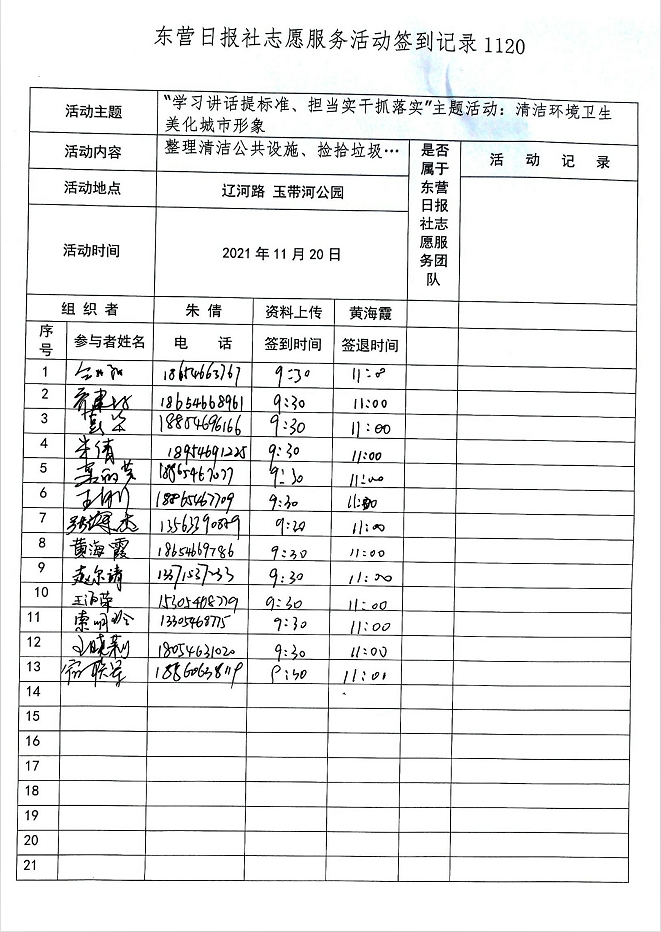 东营日报社志愿服务活动签到记录1120
活动主题 “学习讲话提标准、担当实干抓落实”主题活动：清洁环境卫生
美化城市形象
活动内容 整理清洁公共设施、捡拾垃圾… 是否属于东营日报社志愿服务团队 活 动 记 录
活动地点 辽河路 玉带河公园
活动时间 2021年11月20日
组 织 者 朱 倩 资料上传 黄海霞
序号 参与者姓名 电 话 签到时间 签退时间
1 18654663767 9:30
2 18654668961 9:30 11:00
3 18854696166 9:30 11:00
4 朱倩 18954691225 9:30 11:00
5 18865467077 9:30 11:00
6 18865467709 9:30 11:00
7 11:00
8 黄海霞 18654669786 9:30 11:00
9 9:30 11:00
10 15305468779 9:30 11:00
11 13305468775 9:30 11:00
12 王晓莉 18054631020 9:30 11:00
13 11:00
14
15
16
17
18
19
20
21